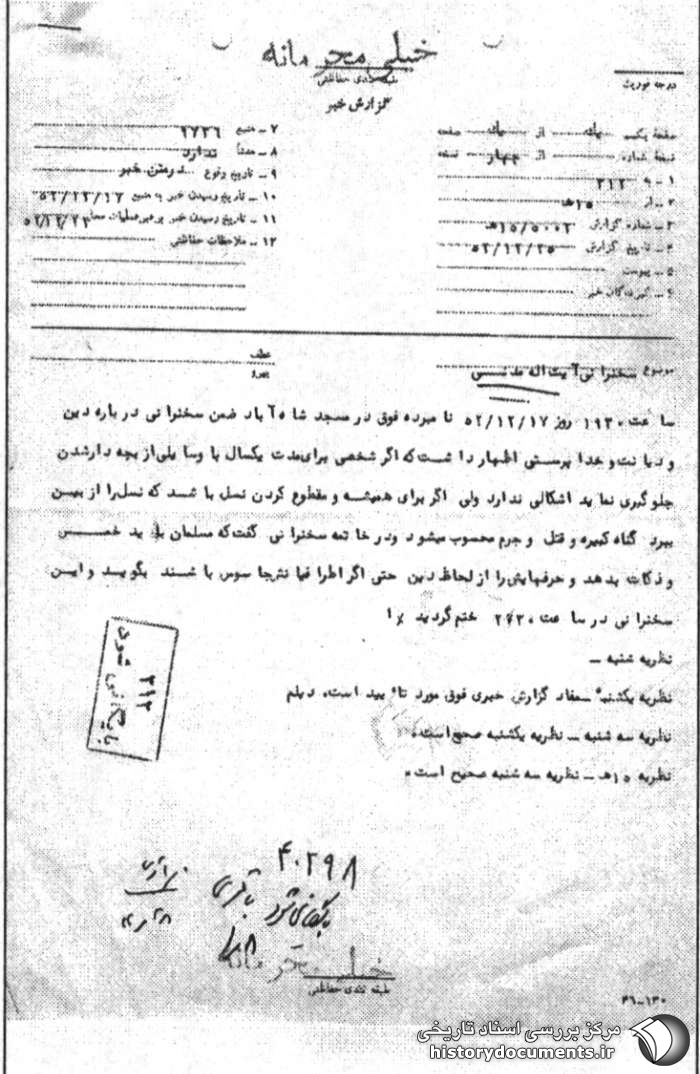 خیلی محرمانه
طبقه بندی حفاظتی
درجه فوریت
گزارش خبر
صفحه یکم از صفحه
نسخه شماره از چهار نسخه
۱ ـ به ۳۱۲
۲ ـ از ۱۵ﻫ
۳ ـ شماره گزارش ۱۵/۵۰۰۲ﻫ
۴ ـ تاریخ گزارش ۵۲/۱۲/۲۵
۵ ـ پیوست
۶ ـ گیرندگان خبر
۷ ـ منبع ۹۷۳۶
۸ ـ منشأ ندارد
۹ ـ تاریخ وقوع درمتن خبر
۱۰ ـ تاریخ رسیدن خبر به منبع ۵۲/۱۲/۱۷
۱۱ ـ تاریخ رسیدن خبر برهبر عملیات
۱۲ ـ ملاحظات حفاظتی
موضوع سخنرانی آیت اله مدنی
عطف
پیرو
ساعت ۱۹۳۰ روز ۵۲/۱۲/۱۷ نامبرده فوق در مسجد شاه آباد ضمن سخنرانی درباره دین
و دیانت و خدا پرستی اظهار داشت که اگر شخصی برای مدت یکسال با وسایلی از بچه دار شدن
جلوگیری نماید اشکالی ندارد ولی اگر برای همیشه و مقطوع کردن نسل باشد که نسل را از بین
ببرد گناه کبیره و قتل و جرم محسوب میشود ودر خاتمه سخنرانی گفت که مسلمان باید خمس
و ذکات بدهد و حرفهایش را از لحاظ دین حتی اگر اطرافیانش جاسوس باشند بگوید و این
سخنرانی در ساعت ختم گردید
نظریه شنبه ـ
نظریه یکشنبه ـ مفاد گزارش خبری فوق مورد تائید است. دیلم
نظریه سه شنبه ـ نظریه یکشنبه صحیح است.
نظریه ۱۵ﻫ ـ نظریه سه شنبه صحیح است.
بایگانی شود
۳۱۲
۴۰۲۹۸
بایگانی شود
خیلی محرمانه
طبقه بندی حفاظتی
۳۶-۱۳۰
مرکز بررسی اسناد تاریخی
historydocuments.ir